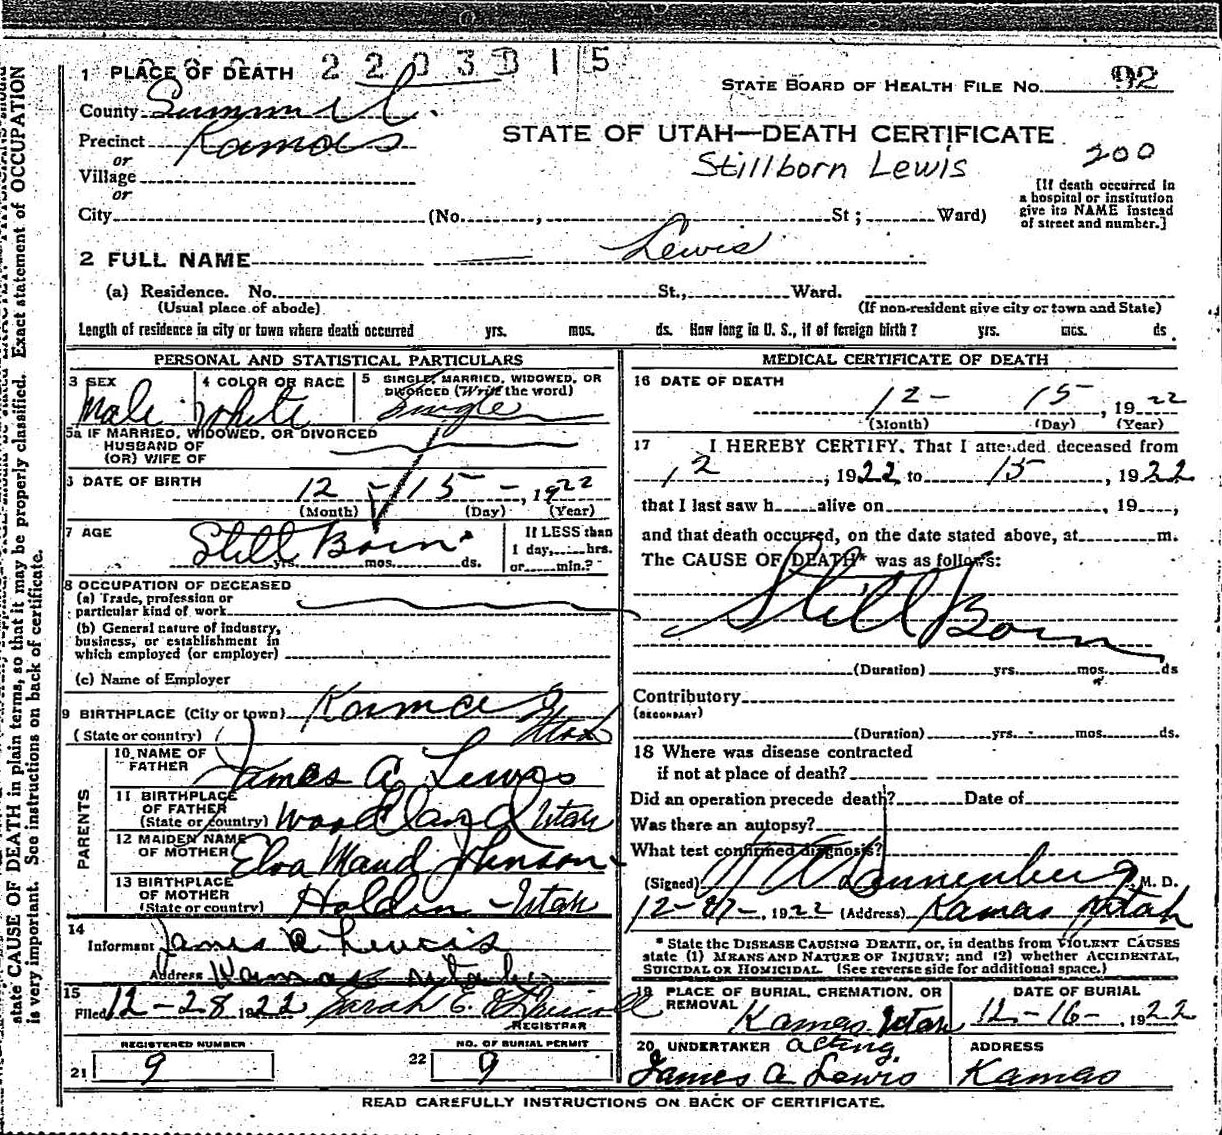 1 PLACE OF DEATH 2203015
STATE BOARD OF HEALTH FILE No. 92
County Summit.
STATE OF UTAH—DEATH CERTIFICATE
Precinct Kamas
or
Stillborn Lewis 200
Village
or
[If death occurred in
a hospital or institution
give its NAME instead
of street and number.]
City (No. , St ; Ward)
2 FULL NAME Lewis
(a) Residence. No. St., Ward.
(Usual place of abode) (If non-resident give city or town and State)
Length of residence in city or town where death occurred yrs. mos. ds. How long in U. S., if of foreign birth ? yrs. mos. ds
PERSONAL AND STATISTICAL PARTICULARS
3 SEX 4 COLOR OR RACE 5 SINGLE, MARRIED, WIDOWED, OR
DIVORCED (Write the word)
Male White Single
5a IF MARRIED, WIDOWED, OR DIVORCED
HUSBAND OF
(OR) WIFE OF
6 DATE OF BIRTH 12 - 15 - , 1922
(Month) (Day) (Year)
7 AGE Still Born If LESS than
1 day, hrs.
yrs. mos. ds. or min.?
8 OCCUPATION OF DECEASED
(a) Trade, profession or
particular kind of work
(b) General nature of industry,
business, or establishment in
which employed (or employer)
(c) Name of Employer
9 BIRTHPLACE (City or town) Kamas
(State or country) Utah
PARENTS
10 NAME OF
FATHER James A Lewis
11 BIRTHPLACE
OF FATHER
(State or country) Woodland Utah
12 MAIDEN NAME
OF MOTHER Elva Maud Johnson
13 BIRTHPLACE
OF MOTHER
(State or country) Holden - Utah
14
Informant James A Lewis
Address Kamas Utah
15
Filed 12-28 1922 Sarah E.
REGISTRAR
REGISTERED NUMBER NO. OF BURIAL PERMIT
21 9 22 9
MEDICAL CERTIFICATE OF DEATH
16 DATE OF DEATH
12- 15 , 1922
(Month) (Day) (Year)
17 I HEREBY CERTIFY, That I attended deceased from
12 , 1922 to 15 , 1922
that I last saw h alive on , 19 ,
and that death occurred, on the date stated above, at m.
The CAUSE OF DEATH* was as follows:
Still Born
(Duration) yrs. mos. ds
Contributory
(SECONDARY)
(Duration) yrs. mos. ds.
18 Where was disease contracted
if not at place of death?
Did an operation precede death? Date of
Was there an autopsy?
What test confirmed diagnosis?
(Signed) M. D.
12-27-, 1922 (Address) Kamas Utah
* State the DISEASE CAUSING DEATH, or, in deaths from VIOLENT CAUSES
state (1) MEANS AND NATURE OF INJURY; and (2) whether ACCIDENTAL,
SUICIDAL OR HOMICIDAL. (See reverse side for additional space.)
19 PLACE OF BURIAL, CREMATION, OR
REMOVAL DATE OF BURIAL
Kamas Utah 12-16-, 1922
20 UNDERTAKER acting ADDRESS
James A Lewis Kamas
READ CAREFULLY INSTRUCTIONS ON BACK OF CERTIFICATE.
state CAUSE OF DEATH in plain terms, so that it may be properly classified. Exact statement of OCCUPATION
is very important. See instructions on back of certificate.